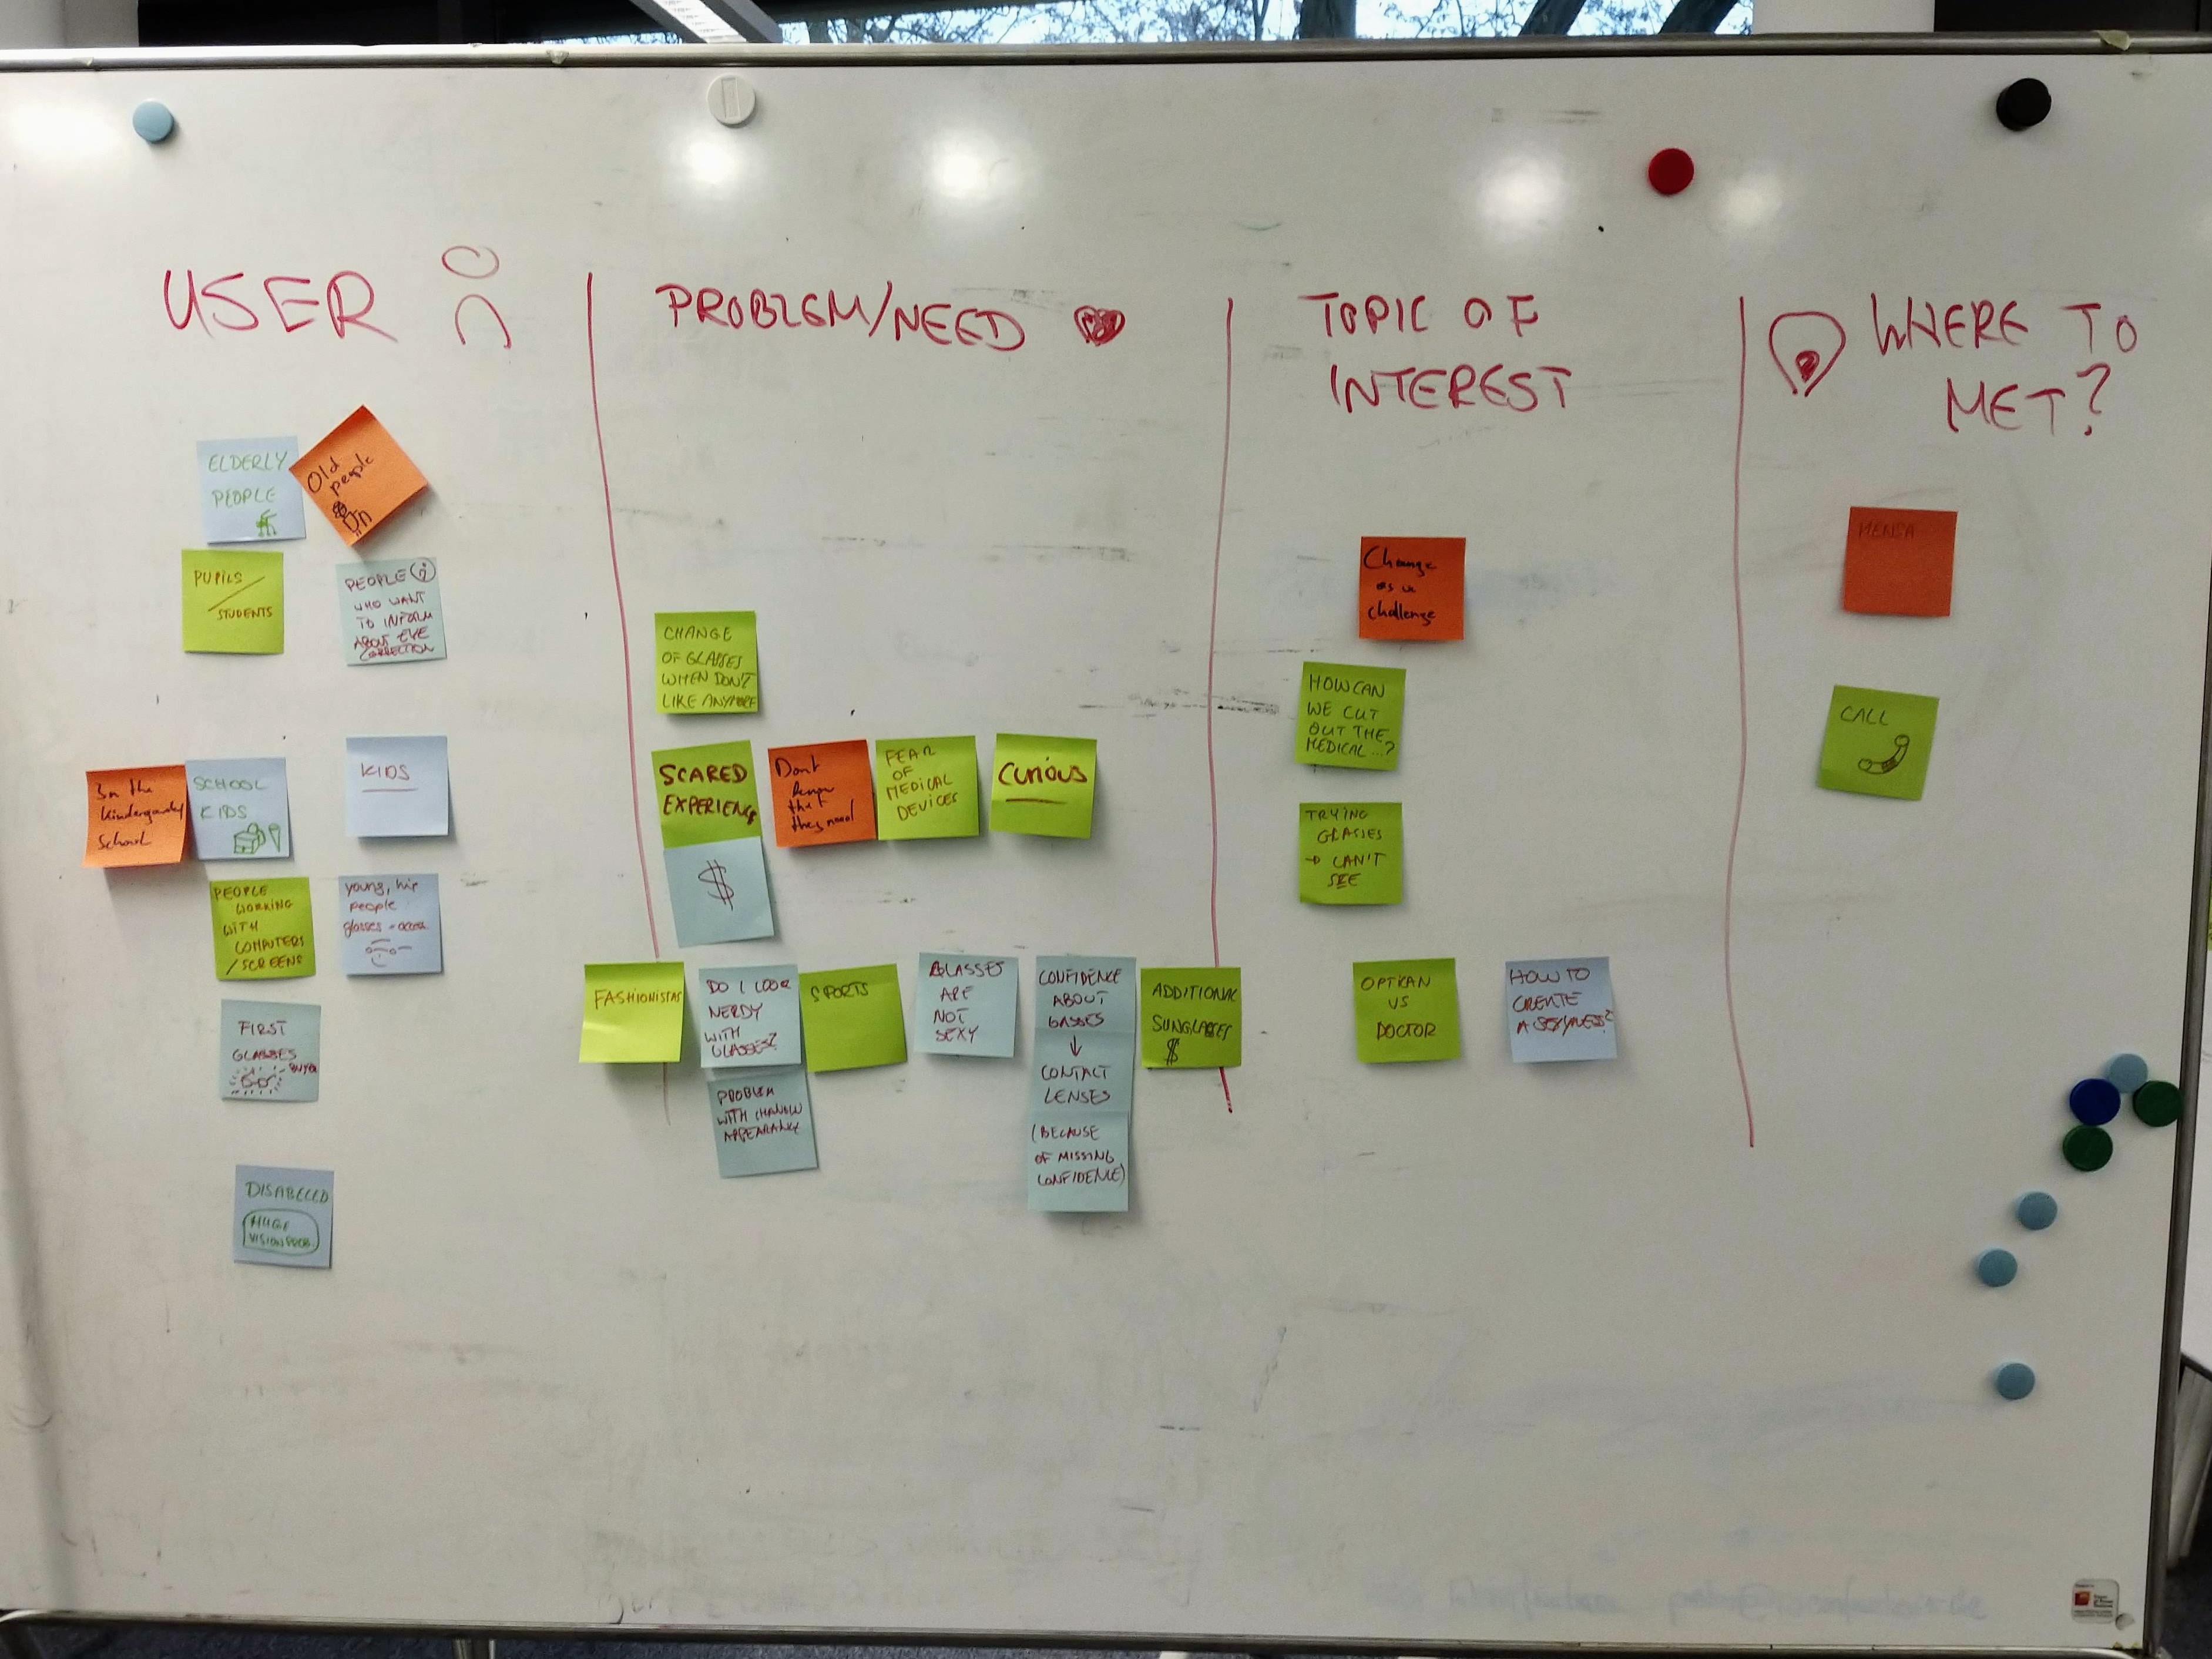 USER
PROBLEM/NEED
TOPIC OF
INTEREST
WHERE TO
MET?
ELDERLY
PEOPLE
Old
people
PUPILS/
STUDENTS
PEOPLE
WHO WANT
TO INFORM
ABOUT EYE
CORRECTION
In the
School
SCHOOL
KIDS
KIDS
PEOPLE
WORKING
WITH
COMPUTERS
/SCREENS
young, hip
people
glasses
FIRST
GLASSES
BUYER
DISABELED
HUGE
VISION PROB.
CHANGE
OF GLASSES
WHEN DON'T
LIKE ANYMORE
SCARED
EXPERIENC
Dont
know
that
they need
FEAR
OF
MEDICAL
DEVICES
Curious
$
FASHIONISTAS
DO I LOOK
NERDY
WITH
GLASSES?
PROBLEM
WITH
SPORTS
GLASSES
ARE
NOT
SEXY
CONFIDENCE
ABOUT
GASSES
↓
CONTACT
LENSES
(BECAUSE
OF MISSING
CONFIDENCE)
ADDITIONAL
SUNGLASSES
$
Change
as a
challenge
HOW CAN
WE CUT
OUT THE
MEDICAL...?
TRYING
GLASSES
→ CAN'T
SEE
OPTICAN
VS
DOCTOR
HOW TO
CREATE
MENSA
CALL